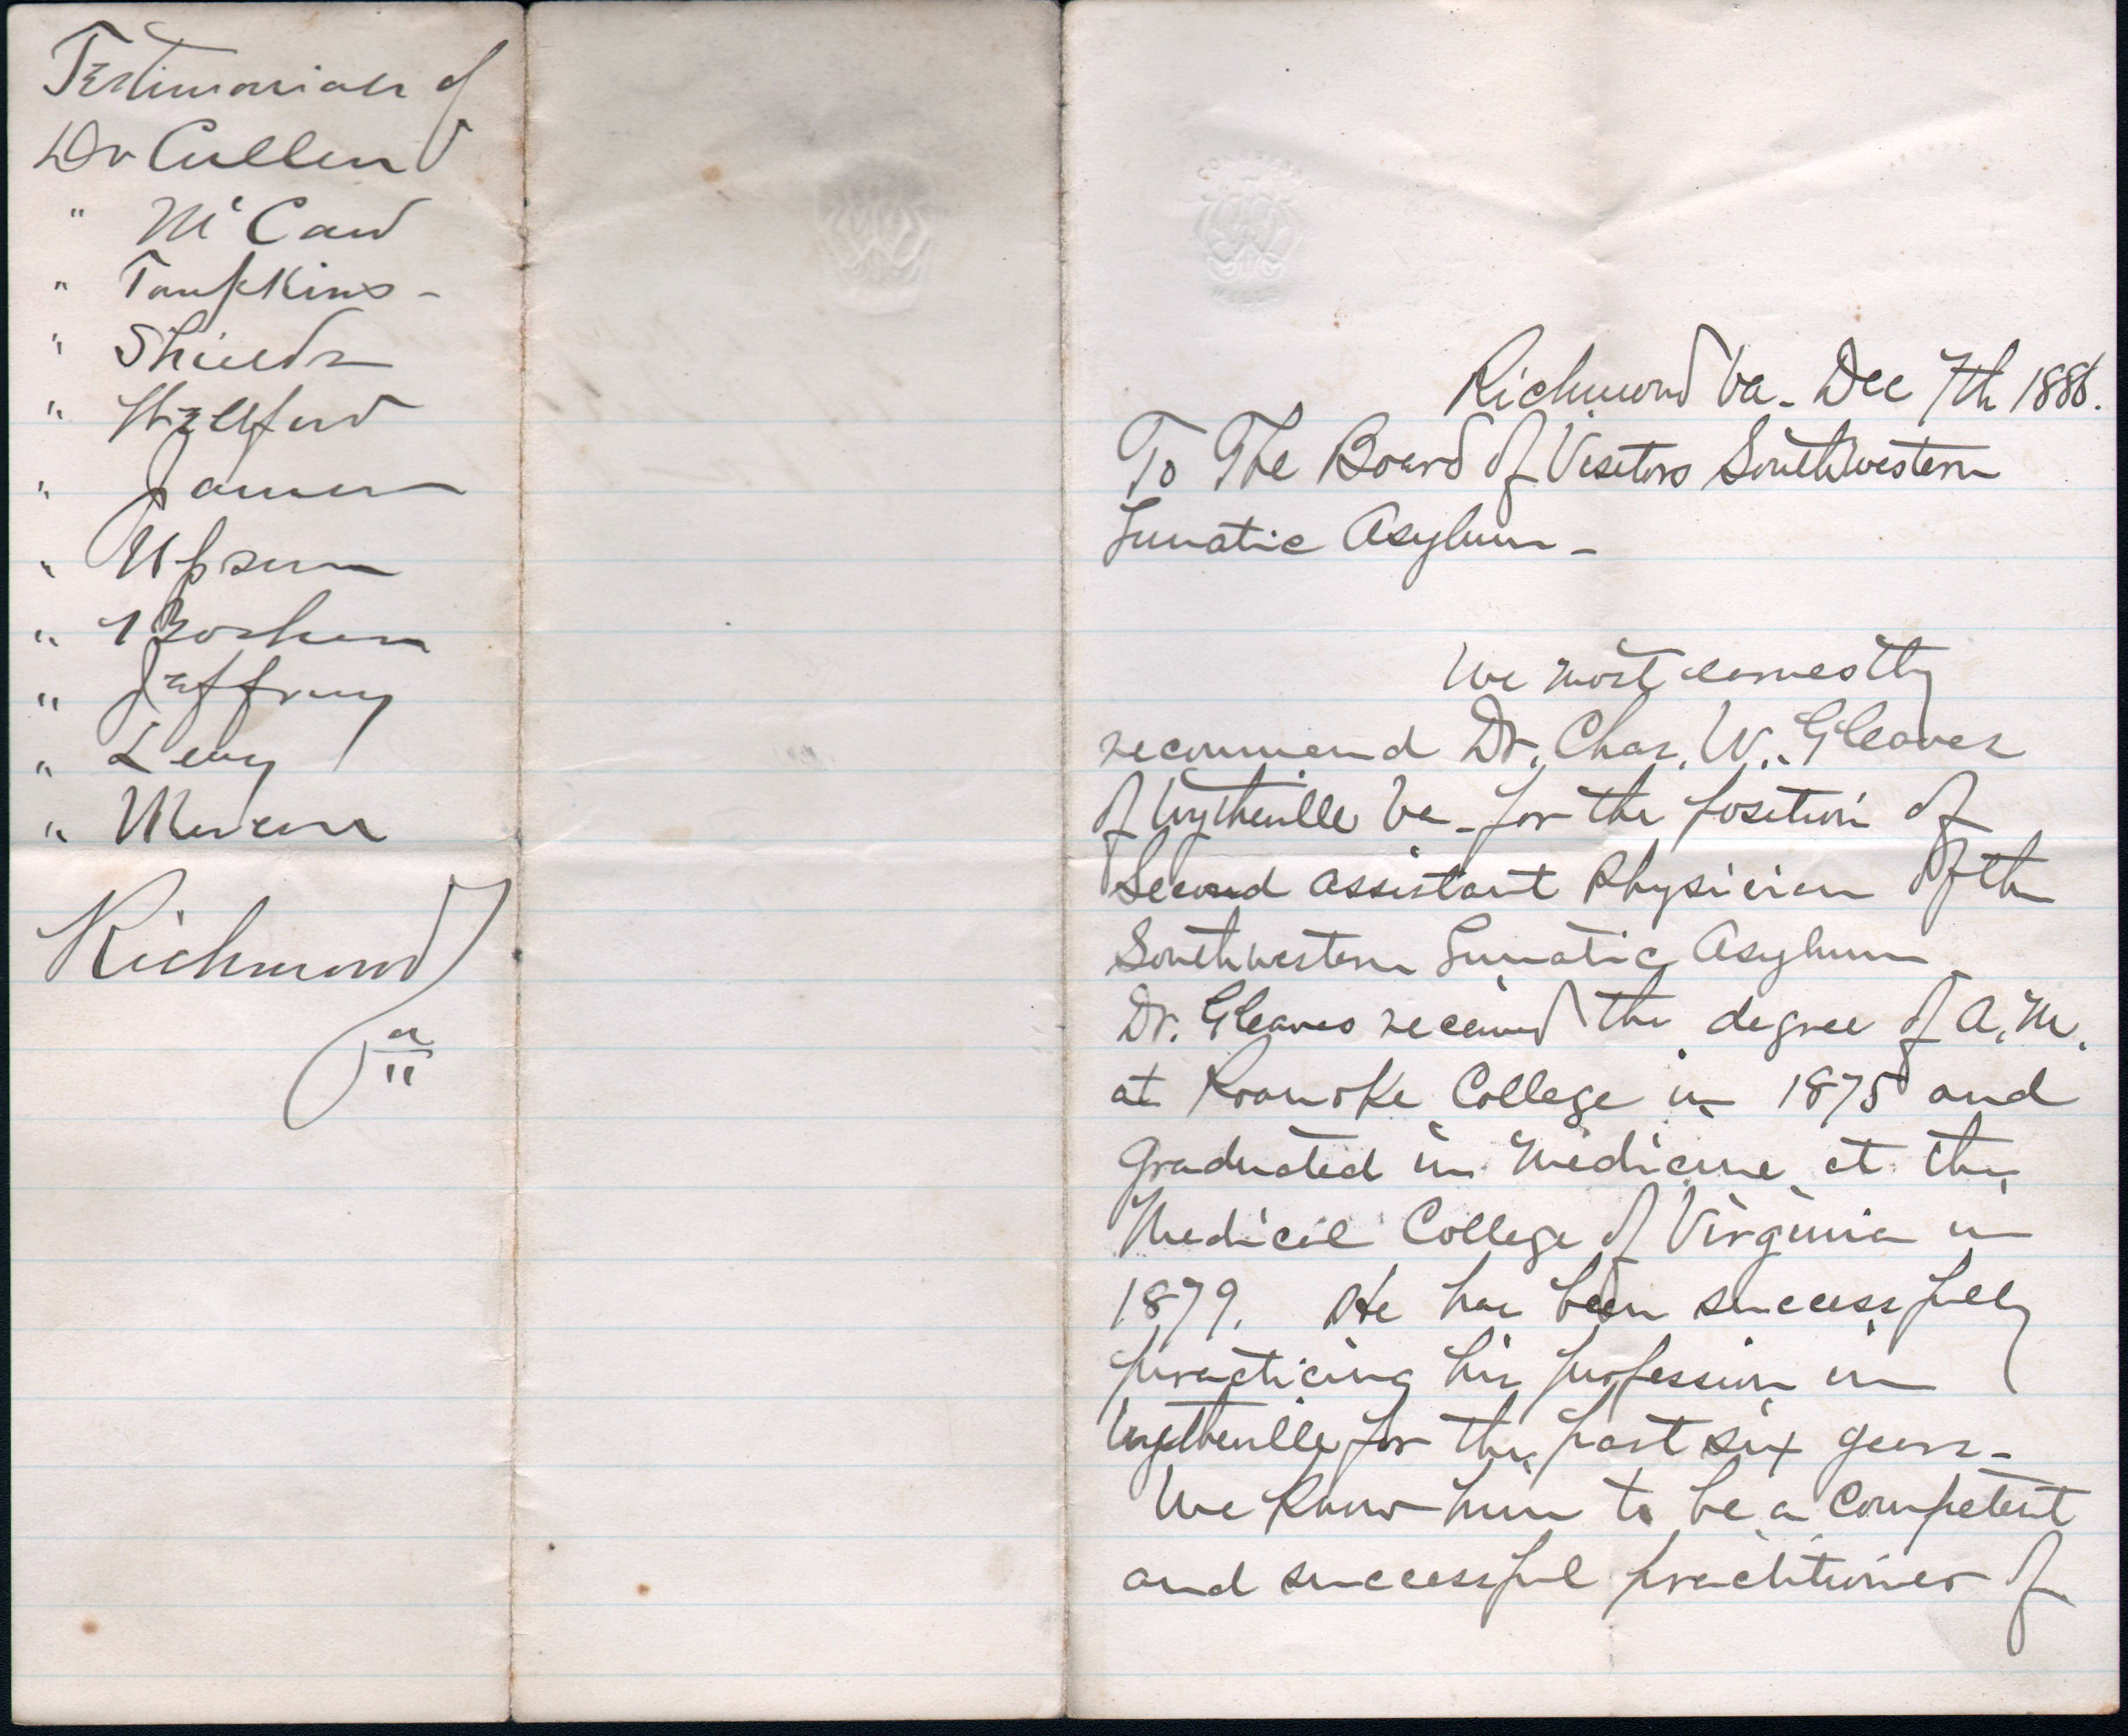 Testimonials of
Dr Cullen
" McCaw
" Tompkins -
" Shields
" Wellford
" James
" Upshur
" Bosher
" Jeffrey
" Levy
"
Richmond
a
"
Richmond Va. Dec 7th 1886.
To The Board of Visitors Southwestern
Lunatic Asylum -
We most earnestly
recommend Dr. Chas. W. Gleaves
of Wytheville Va - for the position of
Second assistant Physician of the
Southwestern Lunatic Asylum
Dr. Gleaves received the degree of A. M.
at Roanoke College in 1875 and
graduated in Medicine at the
Medical College of Virginia in
1879. He has been successfully
practicing his profession in
Wytheville for the past six years -
We know him to be a competent
and successful practitioner of